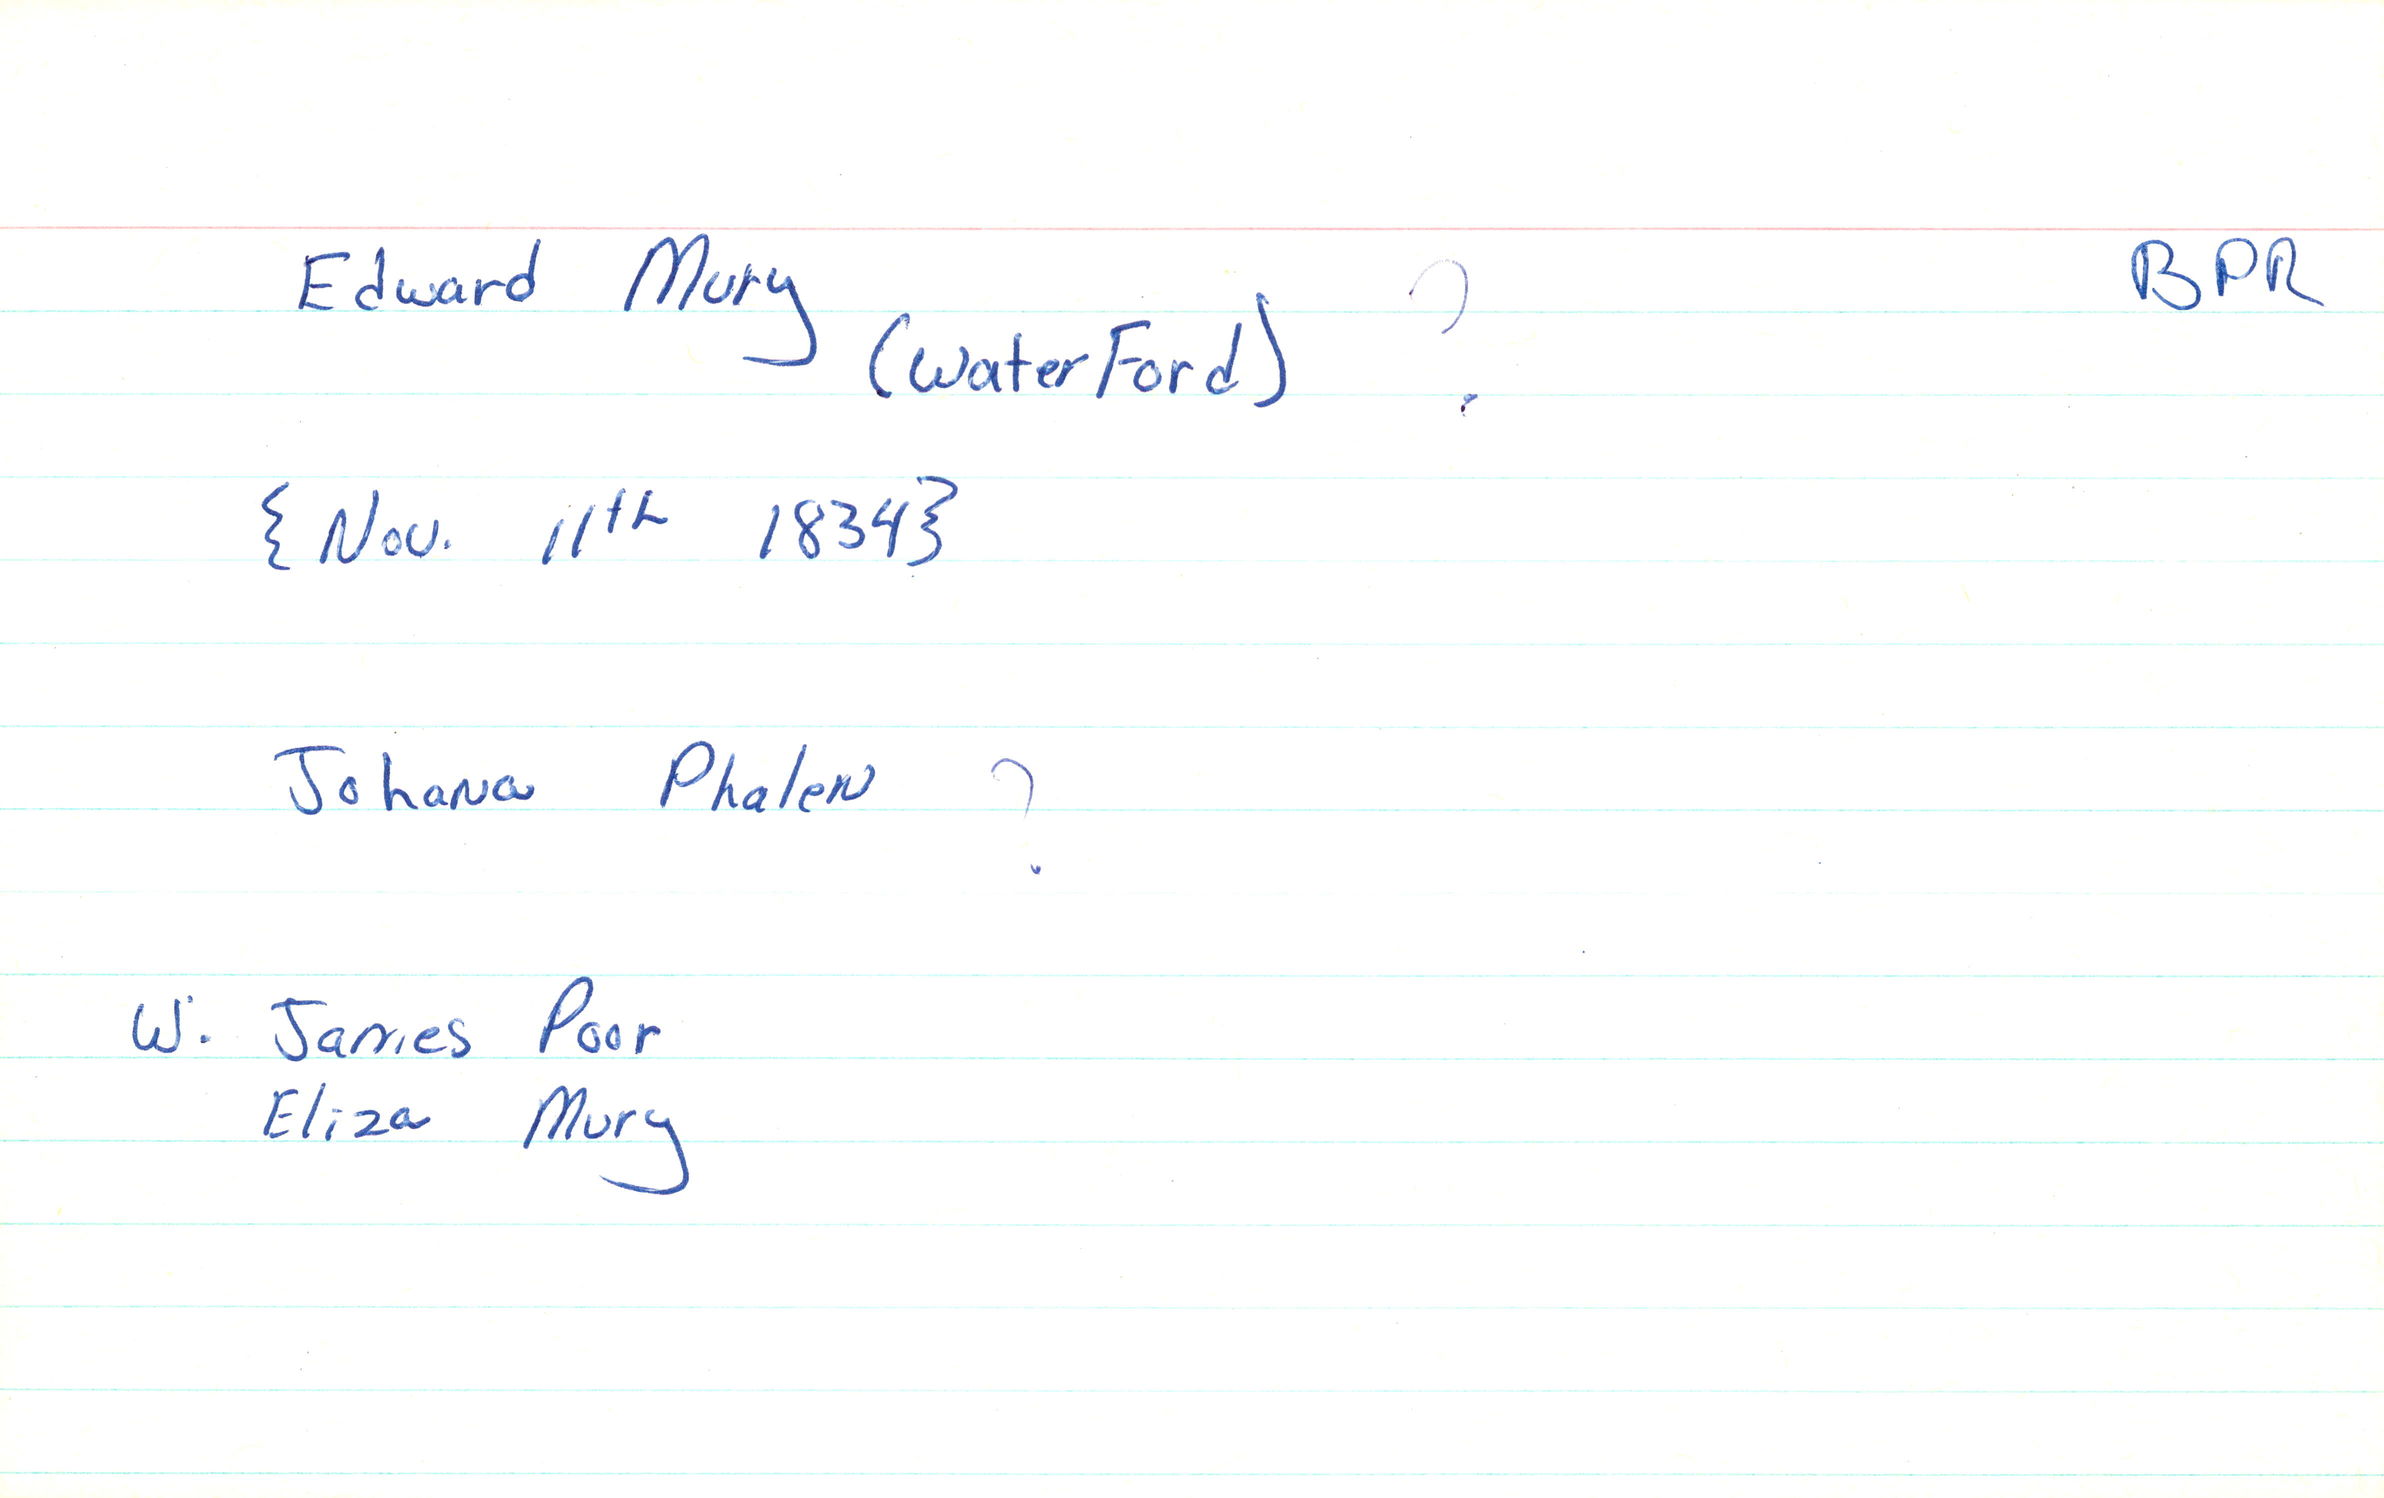 Edward Mury ? BPR
(WaterFord)
{Nov. 11th 1834}
Johana Phalen ?
W. James Poor
Eliza Mury